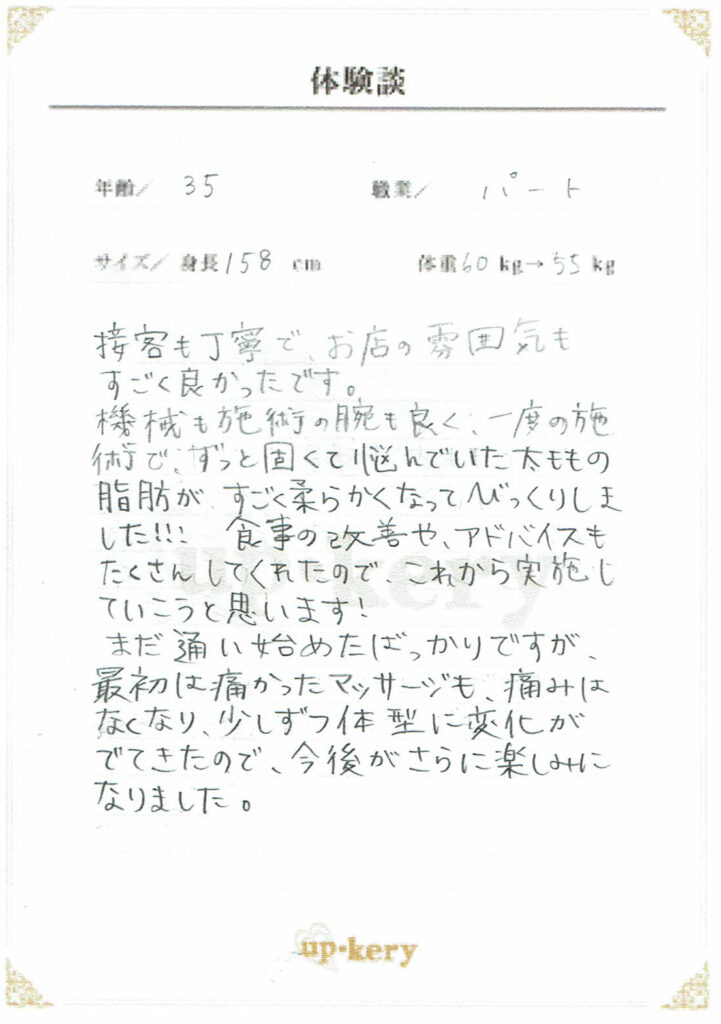 体験談
年齢/ 35 職業/ パート
サイズ/ 身長 158 cm 体重 60 kg→55 kg
接客も丁寧で、お店の雰囲気も
すごく良かったです。
機械も施術の腕も良く、一度の施
術で、ずっと固くて悩んでいた太ももの
脂肪が すごく柔らかくなってびっくりしま
した!!! 食事の改善や、アドバイスも
たくさんしてくれたので、これから実施し
ていこうと思います!
まだ通い始めたばっかりですが、
最初は痛かったマッサージも、痛みは
なくなり、少しずつ体型に変化が
でてきたので、今後がさらに楽しみに
なりました。
up・kery
up・kery